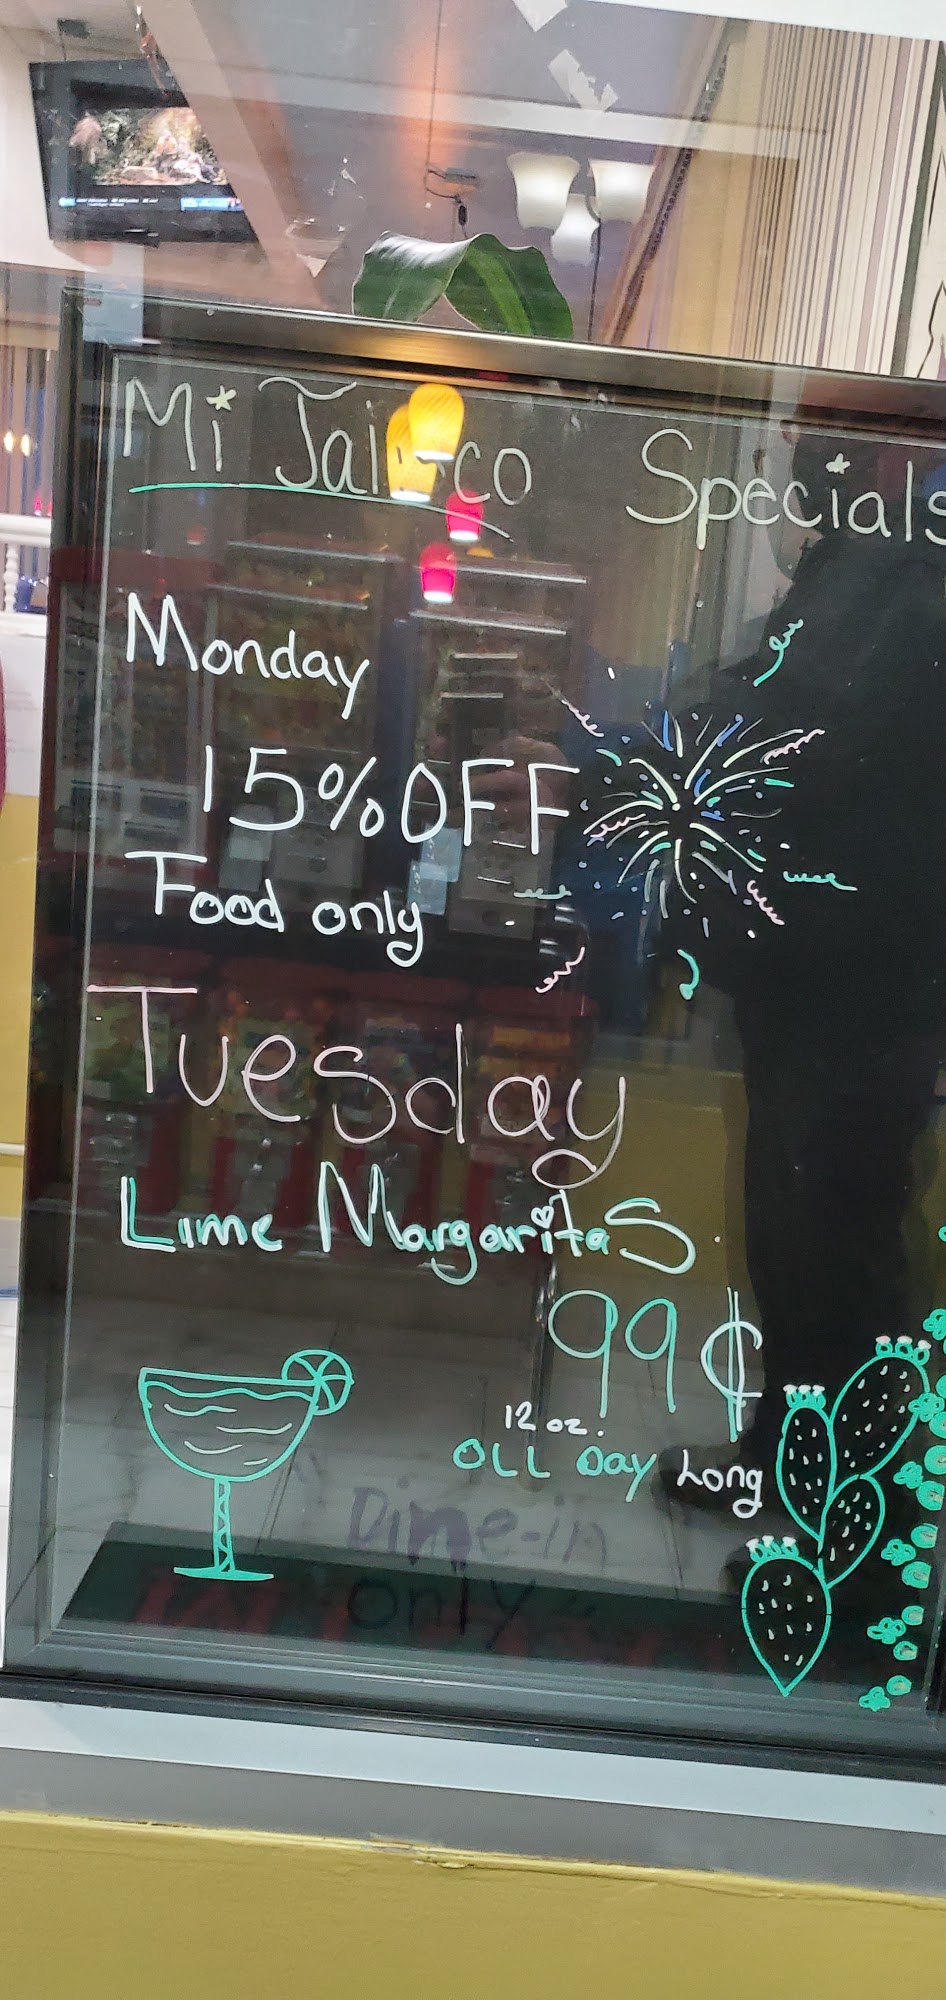 Mi Jalisco Specials
Monday
15% OFF
Food only
Tuesday
Lime Margaritas
99¢
12 oz.
OLL Day Long
Dine-in
only